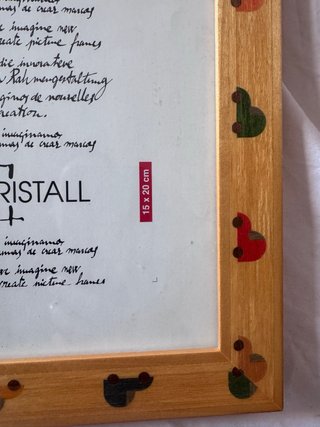 mas de crear marcos
e imagine new
reate picture frames
die innovateve
n Rahmengestaltung
ginos de nouvelles
creation.
imaginamos
mas de crear marcos
RISTALL
15 x 20 cm
imaginamos
mas de crear marcos
we imagine new
create picture frames